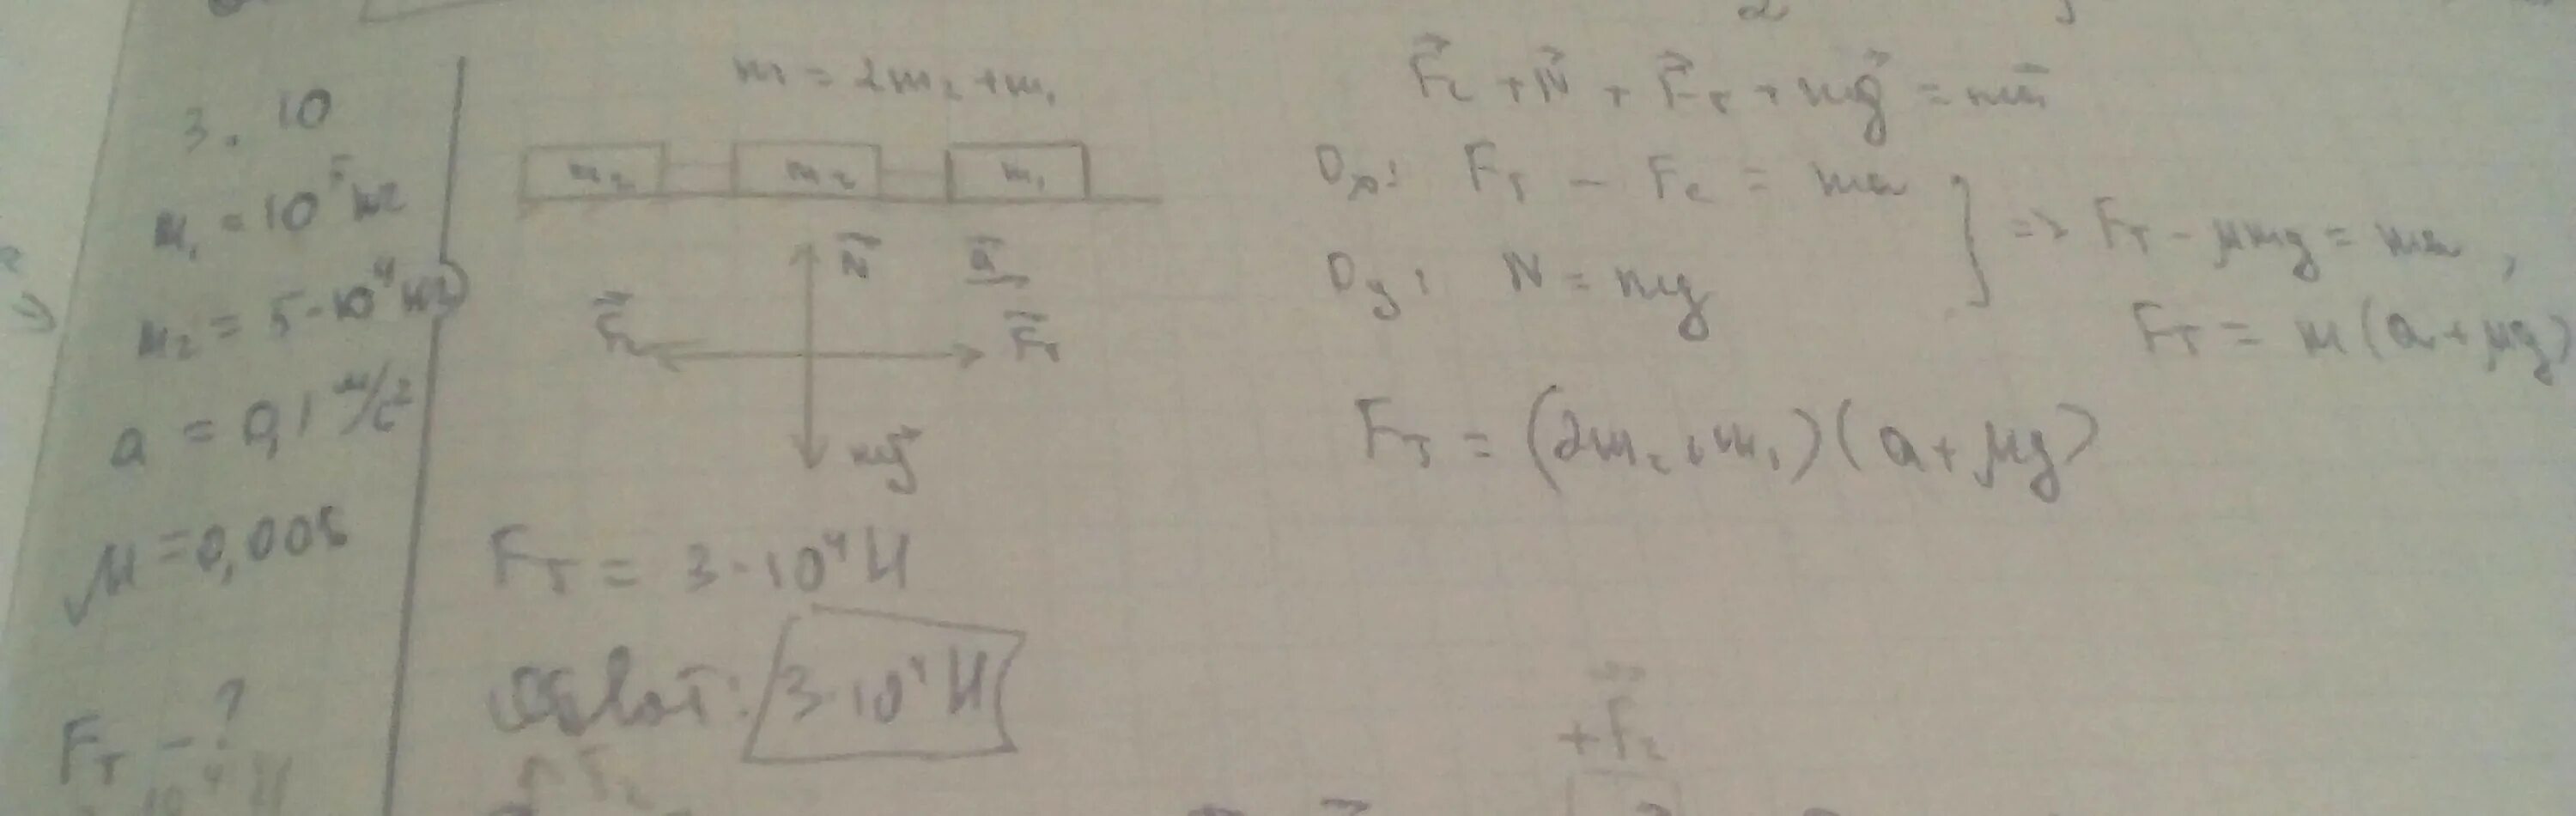 3. 10
m₁ = 10⁵ кг
m₂ = 5·10⁴ кг
a = 0,1 м/с²
μ = 0,005
Fт - ?
m = 2m₂ + m₁
m₂ m₂ m₁
N⃗ a⃗
F⃗c F⃗т
mg⃗
Fт = 3·10⁴ Н
Ответ: 3·10⁴ Н
F⃗c + N⃗ + F⃗т + mg⃗ = ma⃗
Ox: Fт - Fc = ma
Oy: N = mg
=> Fт - μmg = ma,
Fт = m(a + μg)
Fт = (2m₂ + m₁)(a + μg)